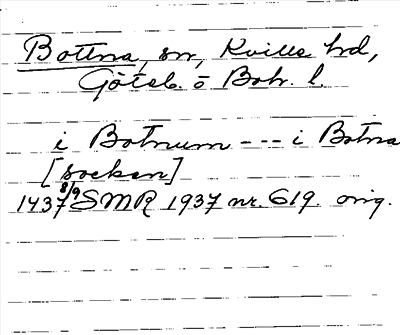 Bottna, sn, Kville hd,
Göteb. o Boh. l.
i Botnum --- i Botna
[socken]
1437 8/9 SMR 1937 nr. 619. orig.